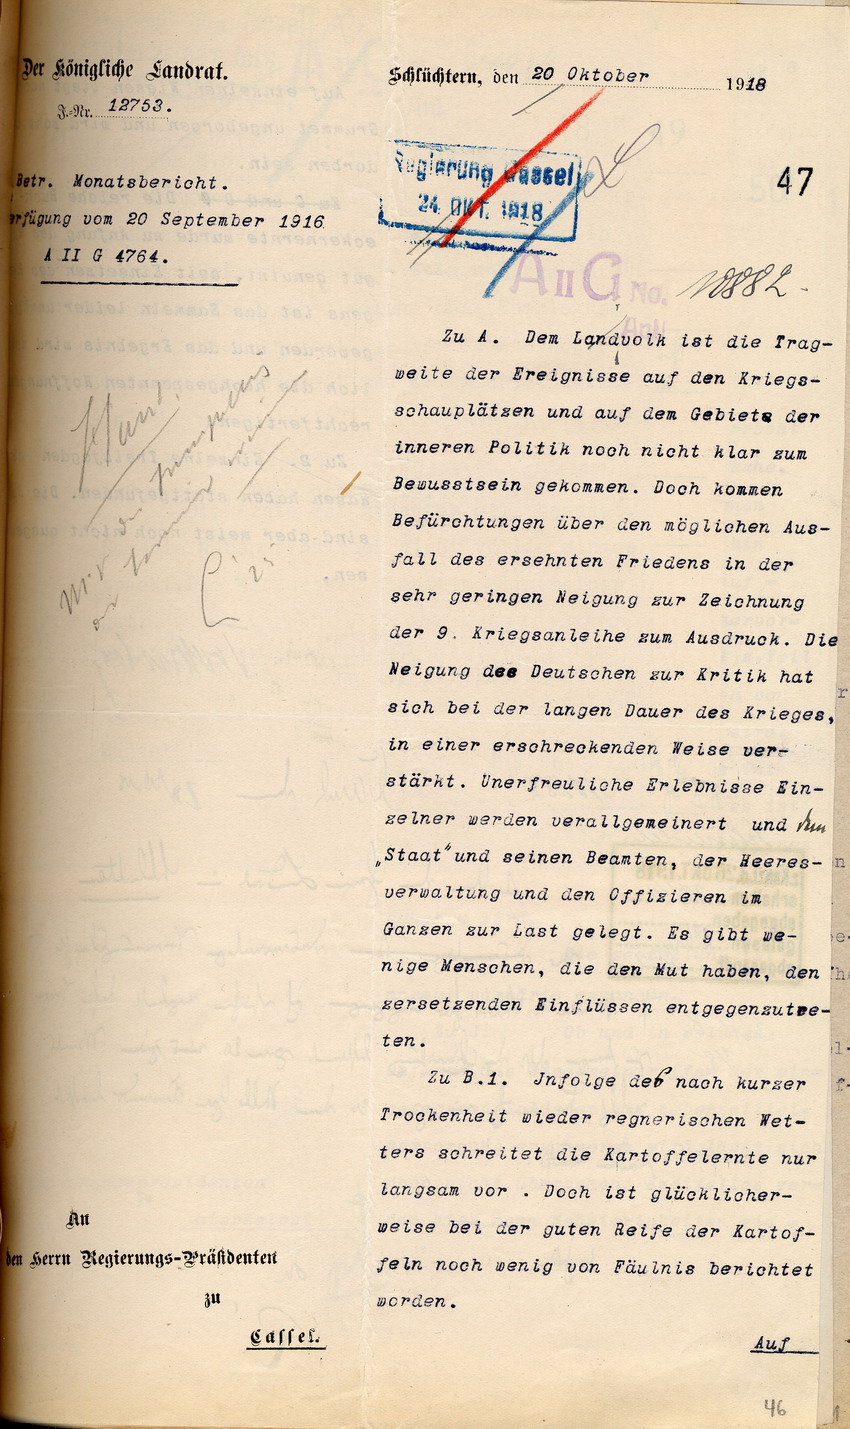 Der Königliche Landrat.
J.-Nr. 12753.
Schlüchtern, den 20 Oktober 1918
Regierung Cassel
24. OKT. 1918
47
Betr. Monatsbericht.
erfügung vom 20 September 1916
A II G 4764.
A II G No.
10882.
Zu A. Dem Landvolk ist die Trag-
weite der Ereignisse auf den Kriegs-
schauplätzen und auf dem Gebiete der
inneren Politik noch nicht klar zum
Bewusstsein gekommen. Doch kommen
Befürchtungen über den möglichen Aus-
fall des ersehnten Friedens in der
sehr geringen Neigung zur Zeichnung
der 9. Kriegsanleihe zum Ausdruck. Die
Neigung des Deutschen zur Kritik hat
sich bei der langen Dauer des Krieges,
in einer erschreckenden Weise ver-
stärkt. Unerfreuliche Erlebnisse Ein-
zelner werden verallgemeinert und dem
„Staat“ und seinen Beamten, der Heeres-
verwaltung und den Offizieren im
Ganzen zur Last gelegt. Es gibt we-
nige Menschen, die den Mut haben, den
zersetzenden Einflüssen entgegenzutre-
ten.
Zu B.1. Jnfolge des nach kurzer
Trockenheit wieder regnerischen Wet-
ters schreitet die Kartoffelernte nur
langsam vor . Doch ist glücklicher-
weise bei der guten Reife der Kartof-
feln noch wenig von Fäulnis berichtet
worden.
Auf
An
den Herrn Regierungs-Präsidenten
zu
Cassel.
46